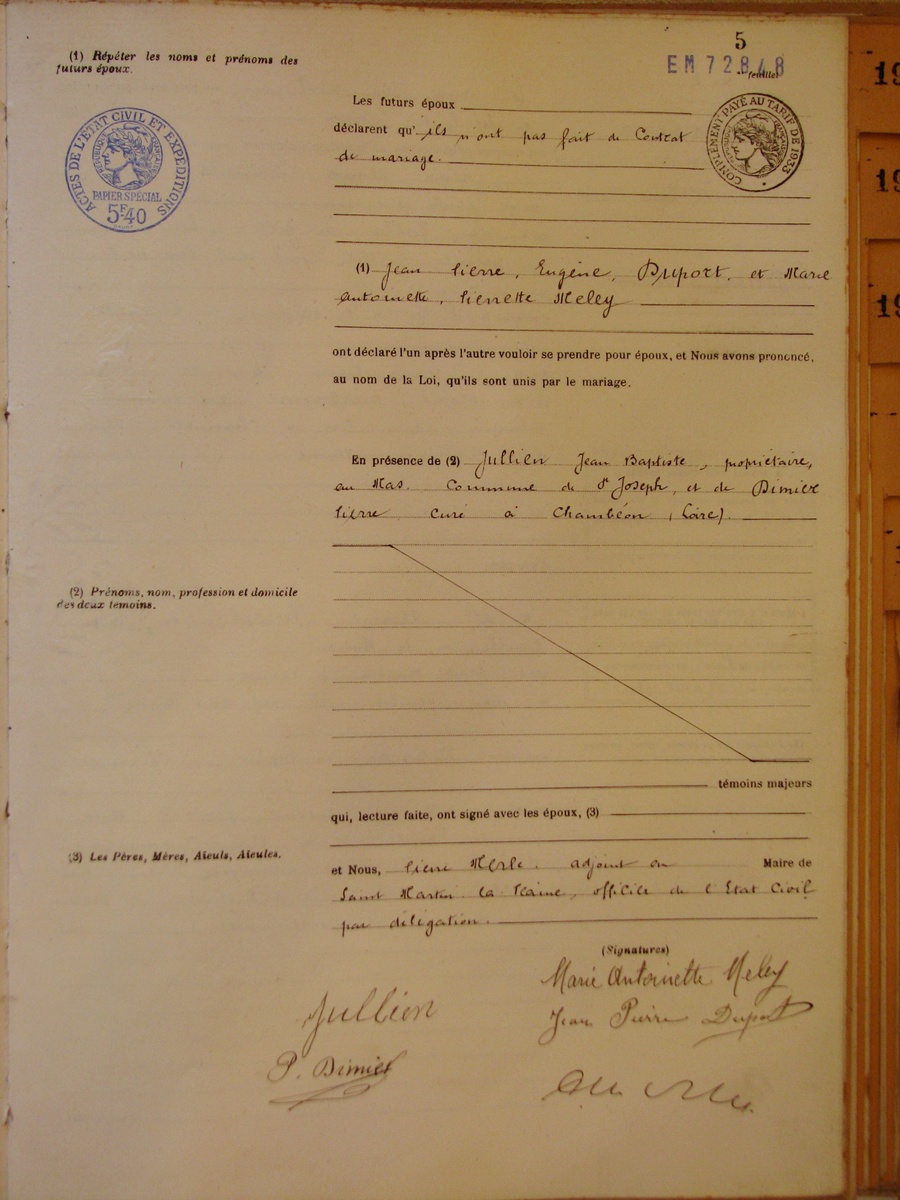 5
EM 72848
feuillet
(1) Répéter les noms et prénoms des
futurs époux.
ACTES DE L'ETAT CIVIL ET EXPEDITIONS
REPUBLIQUE FRANÇAISE
PAPIER SPECIAL
5F40
COMPLEMENT PAYÉ AU TARIF DE 1933
Les futurs époux
déclarent qu'ils n'ont pas fait de Contrat
de mariage.
(1) Jean Pierre, Eugène, Duport, et Marie
Antoinette, Pierrette Meley
ont déclaré l'un après l'autre vouloir se prendre pour époux, et Nous avons prononcé,
au nom de la Loi, qu'ils sont unis par le mariage.
En présence de (2) Jullien Jean Baptiste, propriétaire,
au Mas. Commune de St Joseph, et de Dimier
Pierre curé à Chambéon (Loire).
(2) Prénoms, nom, profession et domicile
des deux témoins.
témoins majeurs
qui, lecture faite, ont signé avec les époux, (3)
(3) Les Pères, Mères, Aïeuls, Aïeules.
et Nous, Pierre Merle. adjoint au Maire de
Saint Martin la Plaine, officier de l'Etat Civil
par déligation.
(Signatures)
Marie Antoinette Meley
Jullien
Jean Pierre Duport
P. Dimier
19
19
19